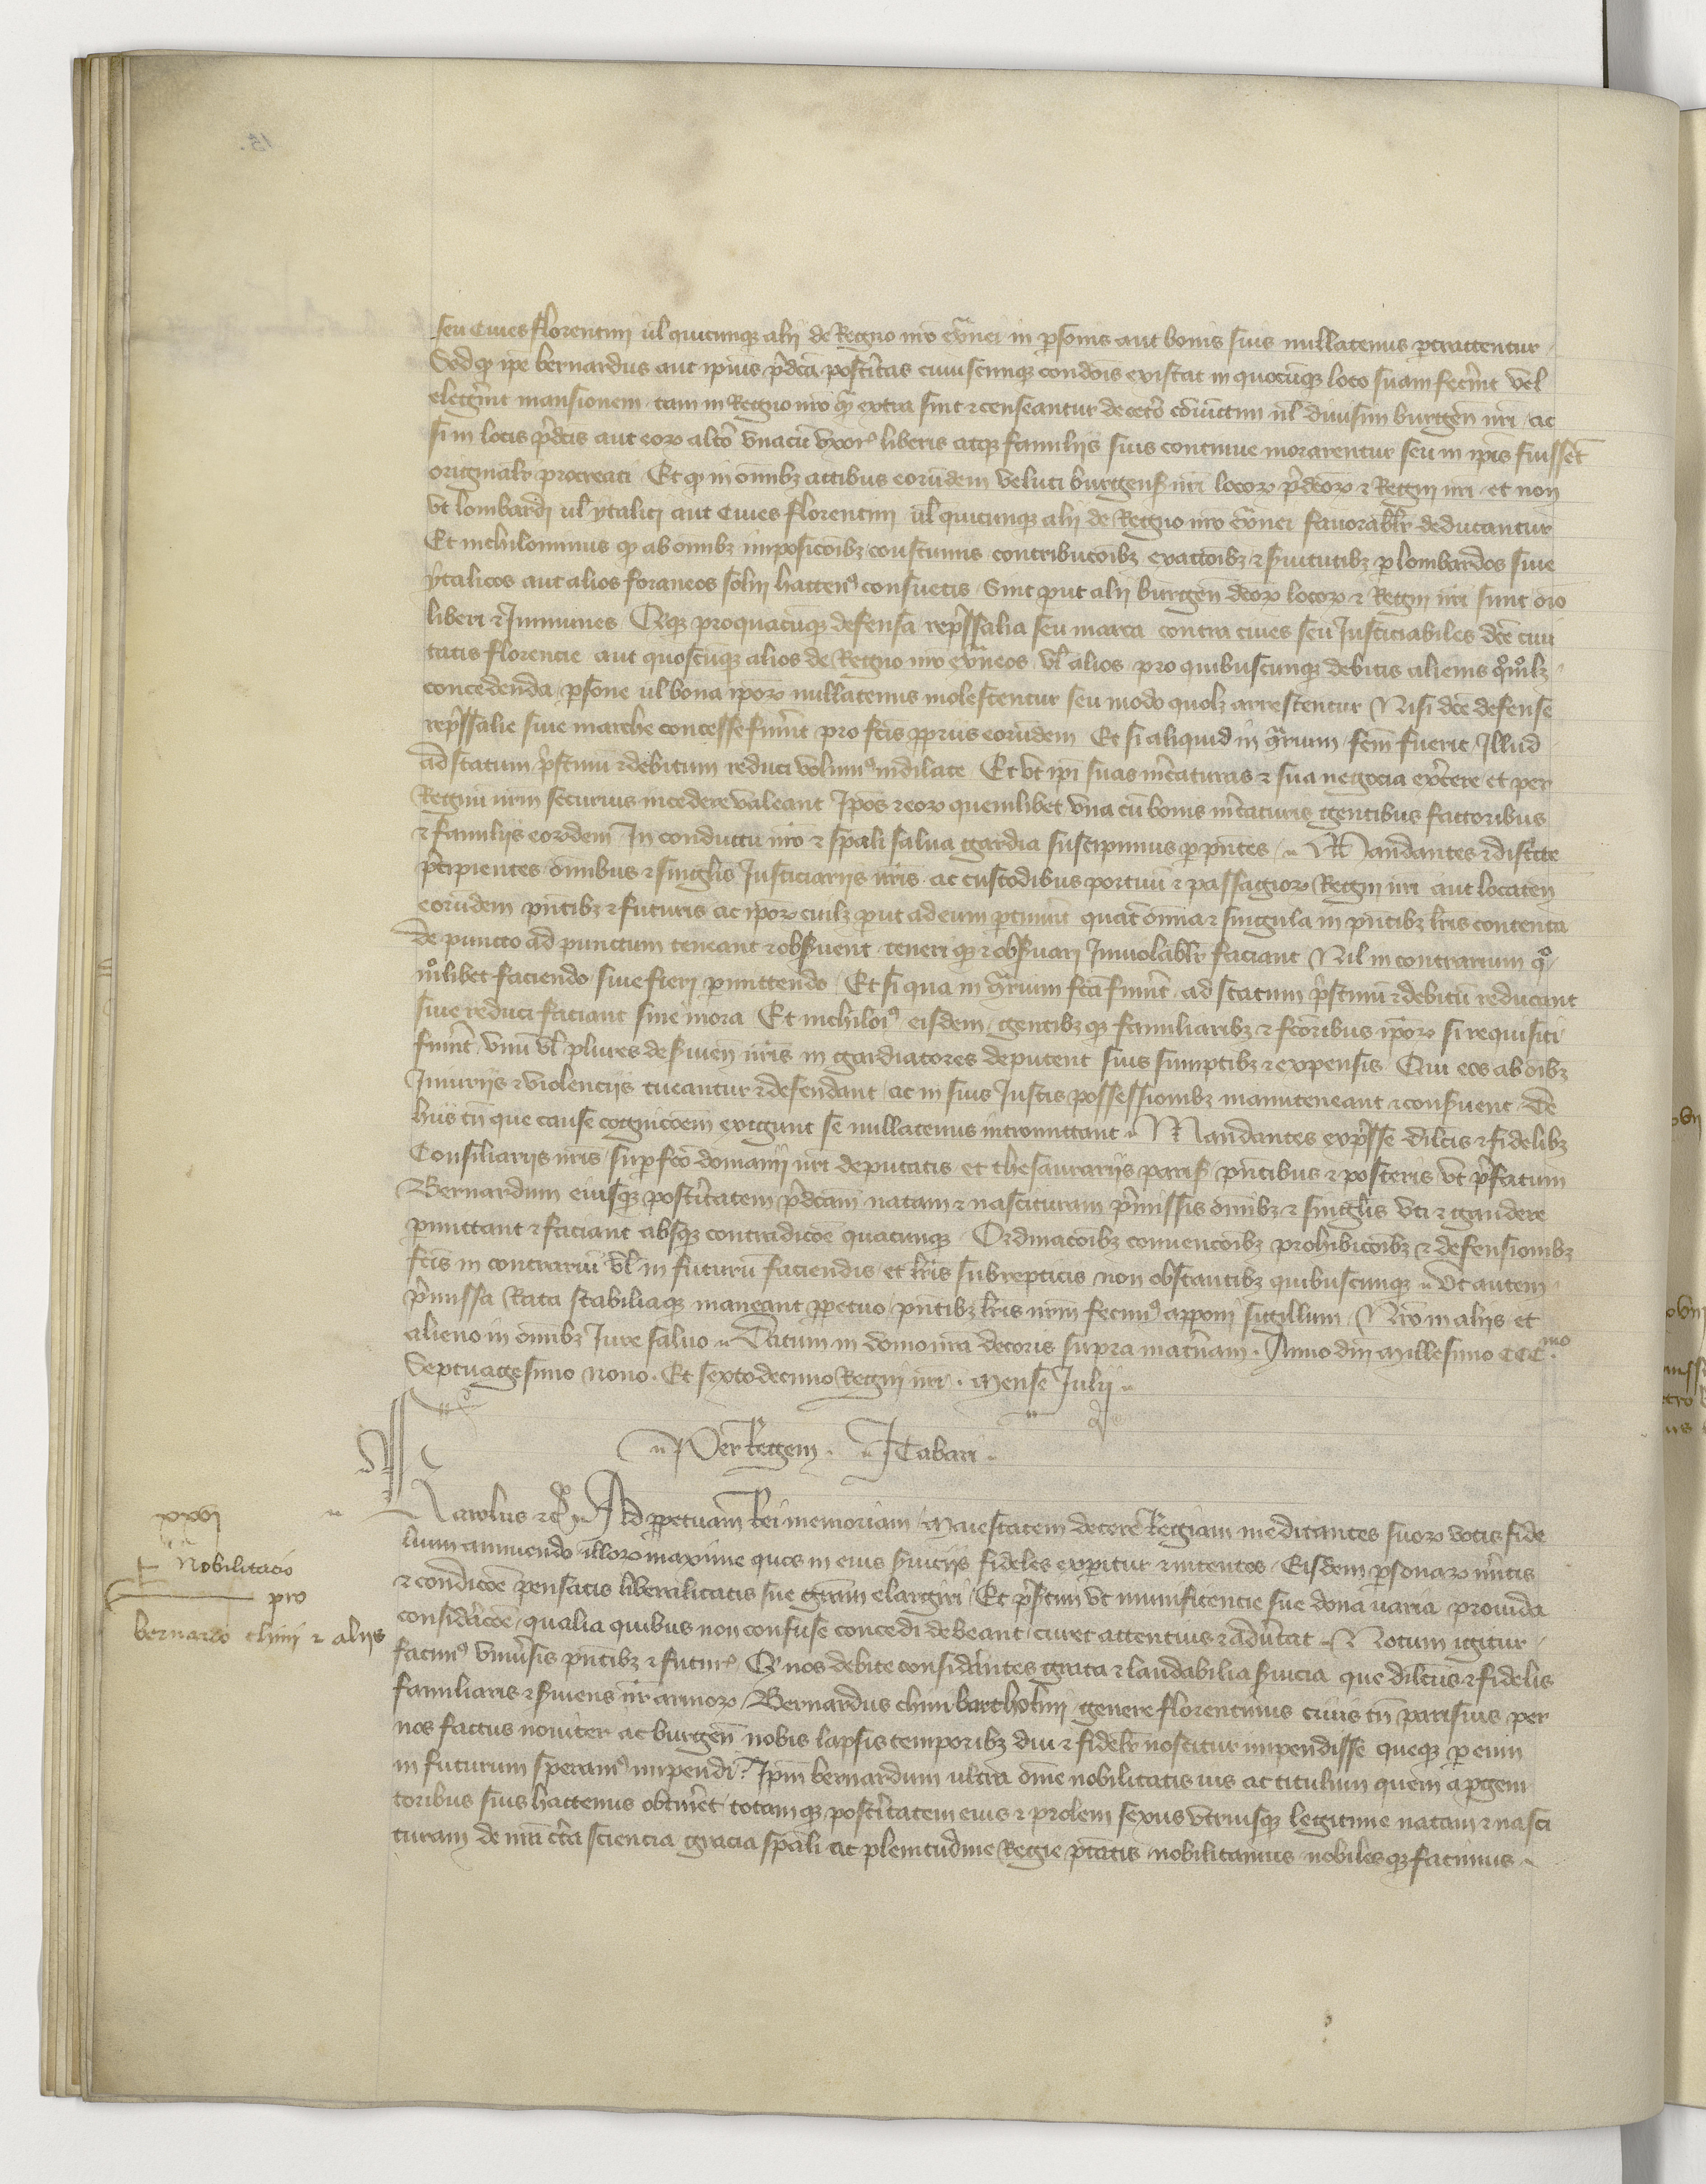 seu Ciues florentini ul quicunque alij de Regno nro extnei in psonis aut bonis suis nullatenus ptractentur
Sed q ipe bernardus aut ipius pdcta posteritas cuiuscunque condois existat in quocunque loco suam fecerint vel
elegerint mansionem tam in Regno nro q extra sint et censeantur de cetero coniunctim ul diuisim burgen nri ac
si in locis pdcis aut eor altero vnacu vxore liberis atque familijs suis continue morarentur seu in ipis fuissent
originalr procreati Et q in omibz actibus eorundem veluti burgens nri locor pdcor et Regni nri et non
vt lombardi ul ytalici aut Ciues florentini ul quicunque alij de Regno nro extnei fauorablr deducantur
Et nichilominus q ab omibz imposicoibz coustumis contribucoibz exactoibz et seruitutibz p lombardos siue
ytalicos aut alios foraneos solui hacten consuetis Sint put alij burgen dcor locor et Regni nri sunt oio
liberi et Jmmunes Atque pro quacunque defensa repressalia seu marca contra ciues seu Justiciabiles dce ciui
tatis florencie aut quoscunque alios de Regno nro extneos vl alios pro quibuscunque debitis alienis qomolz
concedenda psone ul bona ipor nullatenus molestentur seu modo quolz arrestentur Nisi dce defense
repressalie siue marche concesse fuerint pro fcis ppriis eorundem Et si aliquid in contrarium fcm fuerit Jllud
ad statum pristinu et debitum reduci volum indilate Et vt ipi suas mercaturas et sua negocia exercere et per
Regnu nrm securius incedere valeant Jpos et eor quemlibet vna cu bonis mercaturis gentibus factoribus
et familijs eorundem In conductu nro et spali salua gardia suscipimus p pntes Mandantes et districte
precipientes omnibus et singlis Justiciarijs nris ac custodibus portuu et passagior Regni nri aut locaten
eorundem pntibz et futuris ac ipor cuilz put ad eum ptinuit quatin omia et singula in pntibz lris contenta
de puncto ad punctum teneant et obseruent teneri que et obseruari Jnuiolablr faciant Nil in contrarium quo
molibet faciendo siue fieri pmittendo Et si qua in contrarium fca fuerint ad statum pristinu et debitu reducant
siue reduci faciant sine mora Et nichiloi eisdem gentibz que familiaribz et fcoribus ipor si requisiti
fuerint vnu vl plures de seruien nris in gardiatores deputent suis sumptibz et expensis Qui eos ab oibz
Jniurijs et violencijs tueantur et defendant ac in suis Justis possessionibz manuteneant et conseruent De
hiis tn que cause cognicoem exigunt se nullatenus intromittant Mandantes expresse dilcis et fidelibz
Consiliarijs nris sup fco domanij nri deputatis et thesaurarijs paris pntibus et posteris vt pfatum
Bernardum eiusque posteritatem pdcam natam et nascituram pmissis omibz et singlis vti et gaudere
pmittant et faciant absque contradicoe quacunque Ordinacoibz conuencoibz prohibicoibz et defensionibz
fcis in contrariu vl in futuru faciendis et lris subrepticis non obstantibz quibuscunque Vt autem
pmissa Rata stabiliaque maneant ppetuo pntibz lris nrm fecim apponi sigillum Nro in alijs et
alieno in omibz Jure saluo Datum in domo nra decoris supra maternam. Anno dni Millesimo CCC.mo
Septuagesimo nono. Et sextodecimo Regni nri. Mense Julij
Per Regem. J Tabari
xxvj
Nobilitacio
pro
bernardo chini et alijs
Karolus etc Ad ppetuam Rei memoriam Maiestatem decere Regiam meditantes suor votis fide
lium annuendo illor maxime quos in eius seruicijs fideles expitur et intentos Eisdem psonar meritis
et condicoe pensatis liberalitatis sue gram elargiri Et presertim vt munificencie sue dona varia prouida
consideracoe qualia quibus non confuse concedi debeant curet attentius et aduertat Notum igitur
facim vniuersis pntibz et futur Q nos debite considerantes grata et laudabilia seruicia que dilcus et fidelis
familiaris et seruiens nr armor Bernardus chini bartholini genere florentinus ciuis tn parisius per
nos factus nouiter ac burgen nobis lapsis temporibz diu et fidelr noscitur impendisse queque p eum
in futurum speram impendi Jpm bernardum ultra ome nobilitatis ius ac titulum quem a pgeni
toribus suis hactenus obtineret totamque posteritatem eius et prolem sexus vtriusque legitime natam et nasci
turam de nra certa sciencia gracia spali ac plenitudine Regie ptatis nobilitamus nobilesque facimus